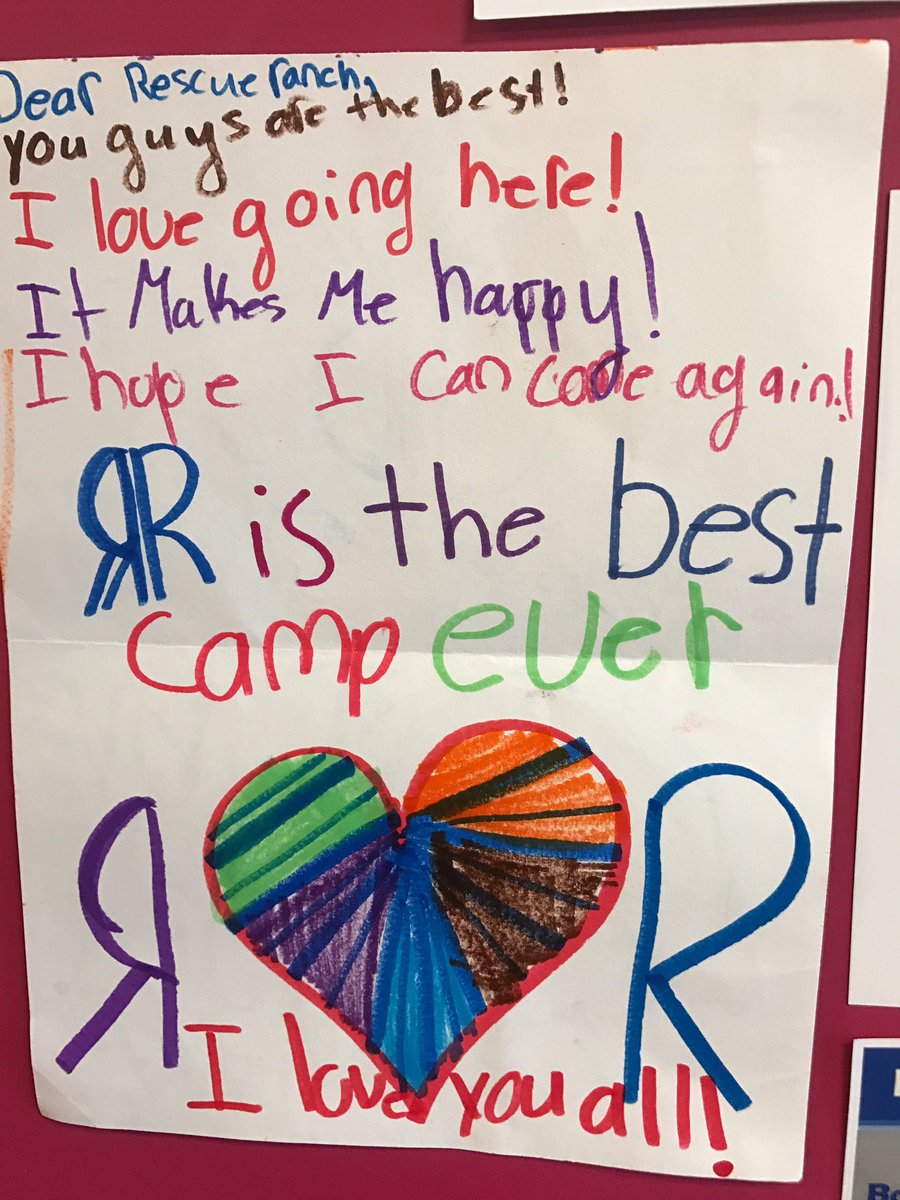 Dear Rescue ranch,
you guys are the best!
I love going here!
It Makes Me happy!
I hope I can come again!
RR is the best
camp ever
R R
I love you all!